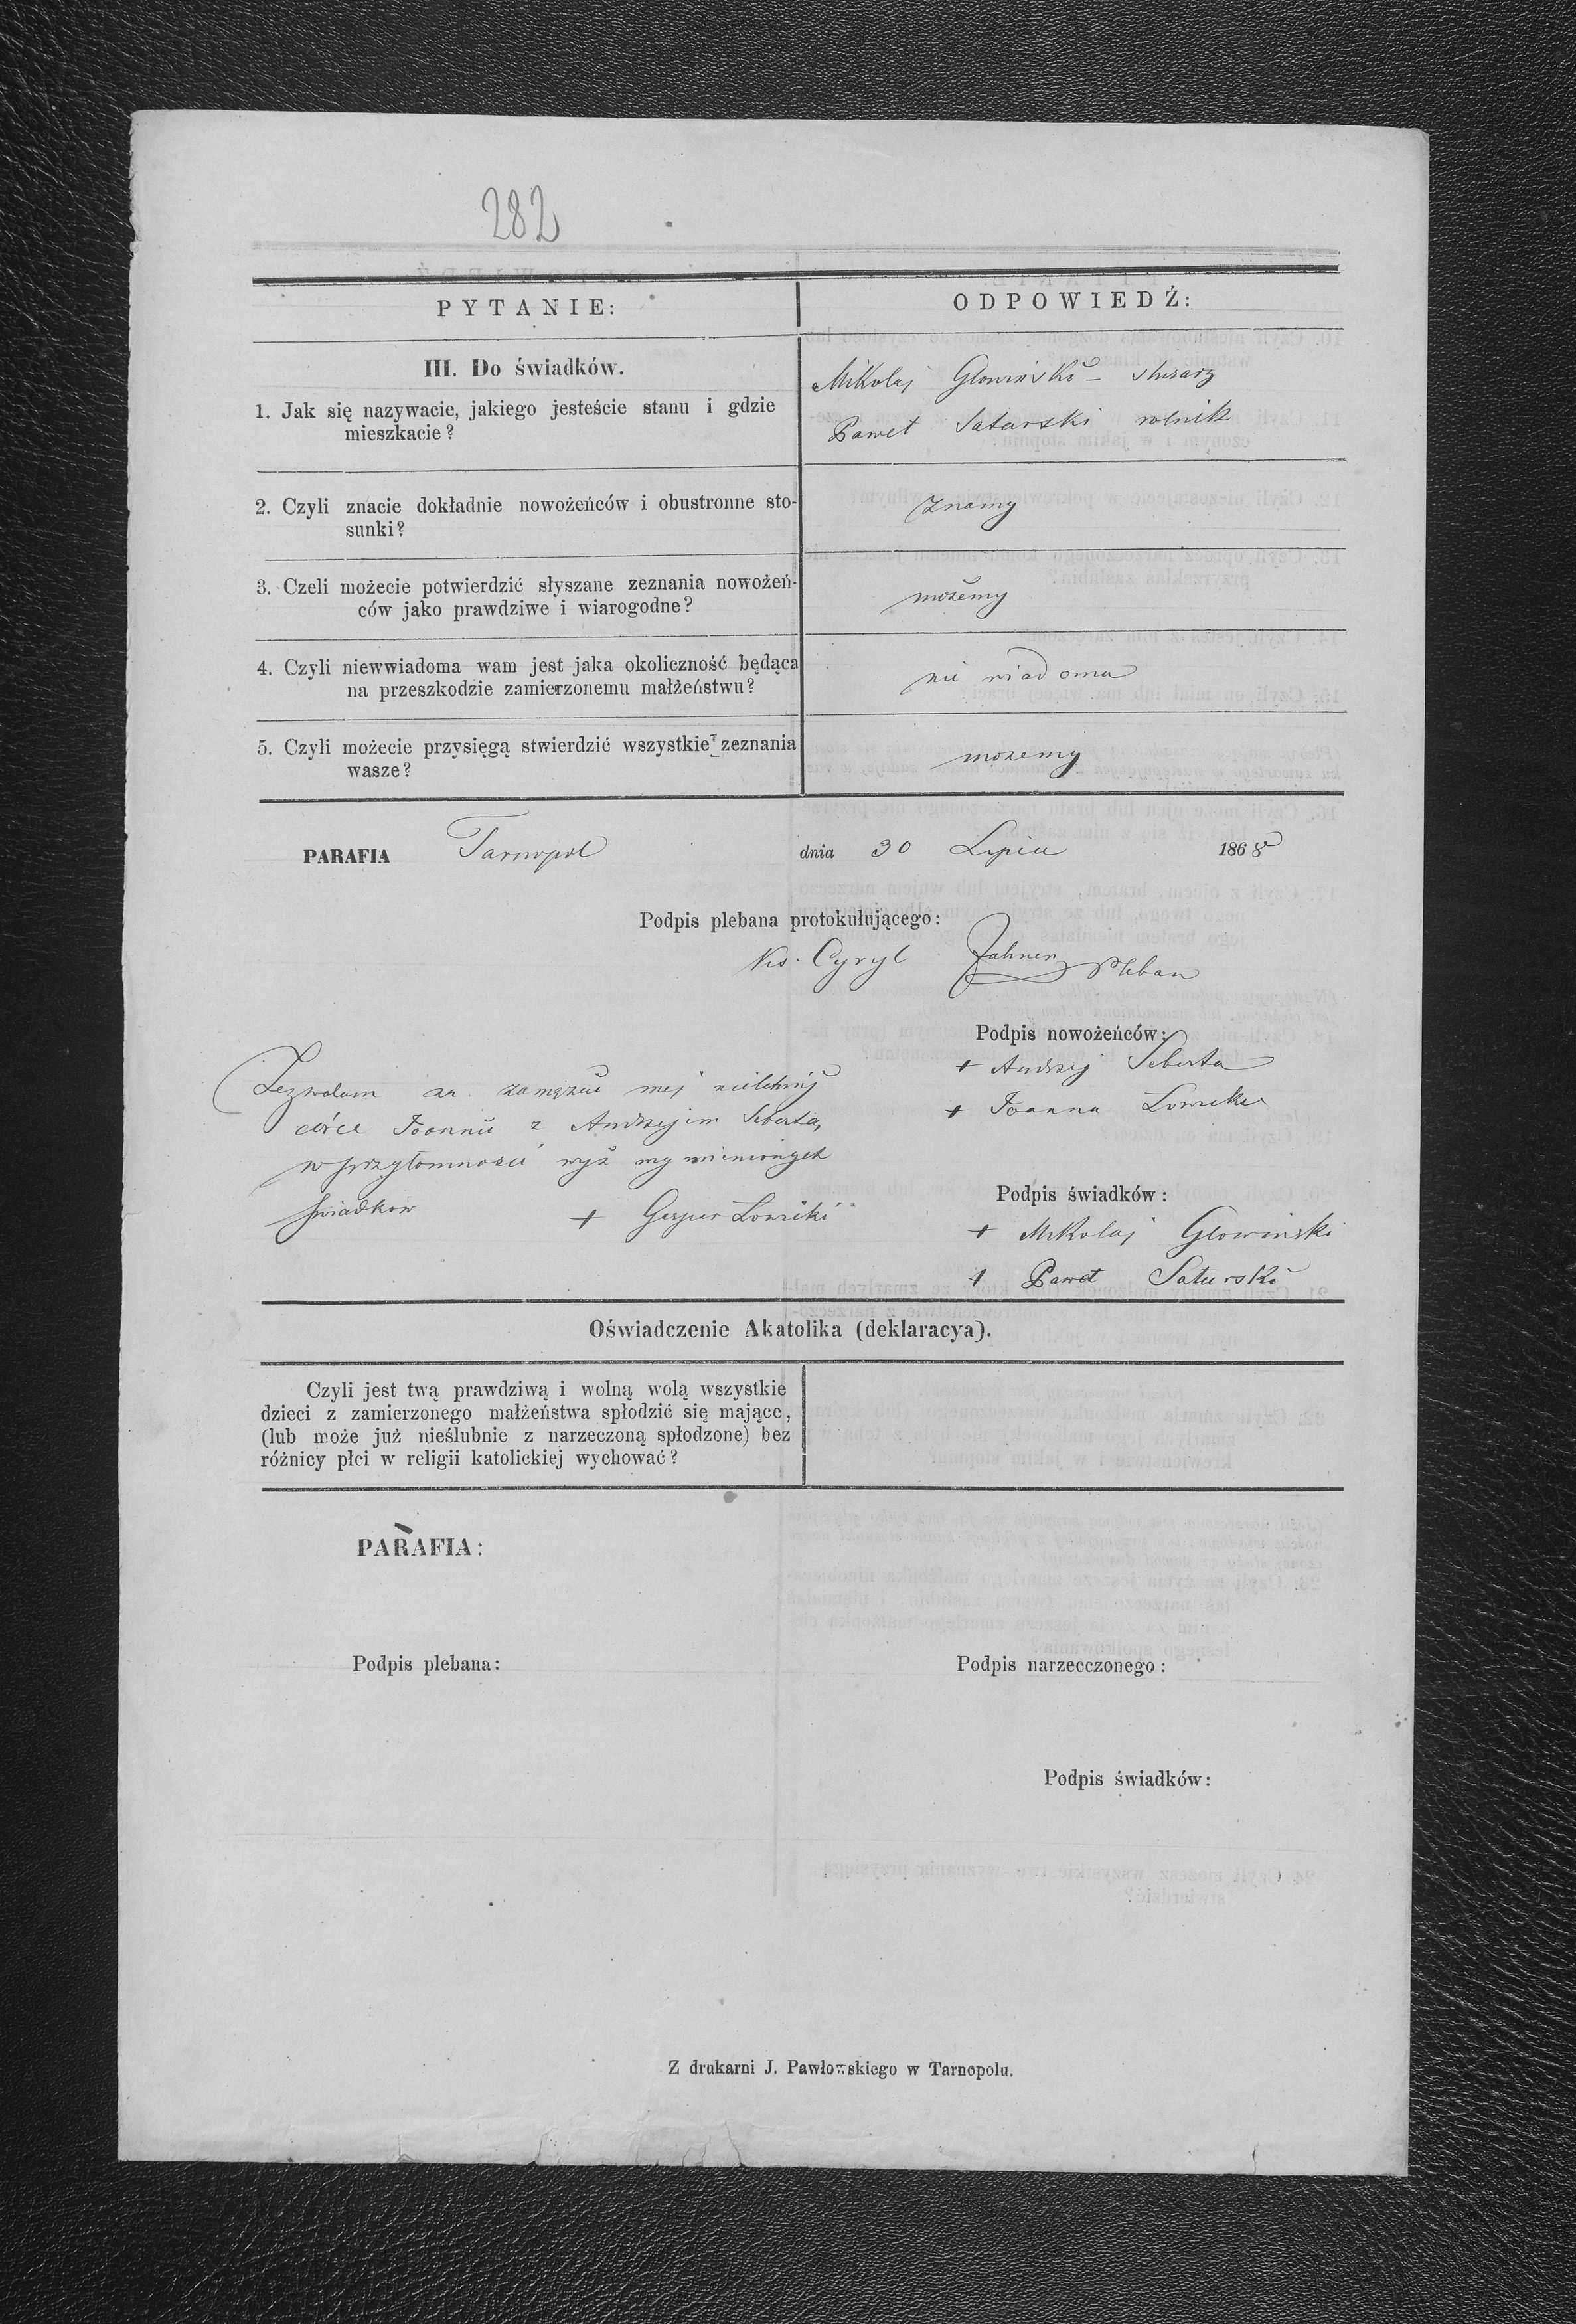 282
PYTANIE:
ODPOWIEDŹ:
III. Do świadków.
1. Jak się nazywacie, jakiego jesteście stanu i gdzie
mieszkacie?
Mikolaj Glowinski – slusarz
Paweł Saturski rolnik
2. Czyli znacie dokładnie nowożeńców i obustronne sto-
sunki?
znamy
3. Czeli możecie potwierdzić słyszane zeznania nowożeń-
ców jako prawdziwe i wiarogodne?
możemy
4. Czyli niewwiadoma wam jest jaka okoliczność będąca
na przeszkodzie zamierzonemu małżeństwu?
nie wiadoma
5. Czyli możecie przysięgą stwierdzić wszystkie zeznania
wasze?
możemy
PARAFIA Tarnopol dnia 30 Lipca 1868
Podpis plebana protokułującego:
Ks. Cyryl Pleban
Podpis nowożeńców:
+ Andrzej Seberta
+ Joanna
Zezwalam na zamęzcie mej nieletnij
córce Joannie z Andrzejem Sebertą
w przytomności wyż wymienionych
świadków
+
Podpis świadków:
+ Mikolaj Glowinski
+ Paweł Saturski
Oświadczenie Akatolika (deklaracya).
Czyli jest twą prawdziwą i wolną wolą wszystkie
dzieci z zamierzonego małżeństwa spłodzić się mające,
(lub może już nieślubnie z narzeczoną spłodzone) bez
różnicy płci w religii katolickiej wychować?
PARAFIA:
Podpis plebana:
Podpis narzecczonego:
Podpis świadków:
Z drukarni J. Pawłowskiego w Tarnopolu.